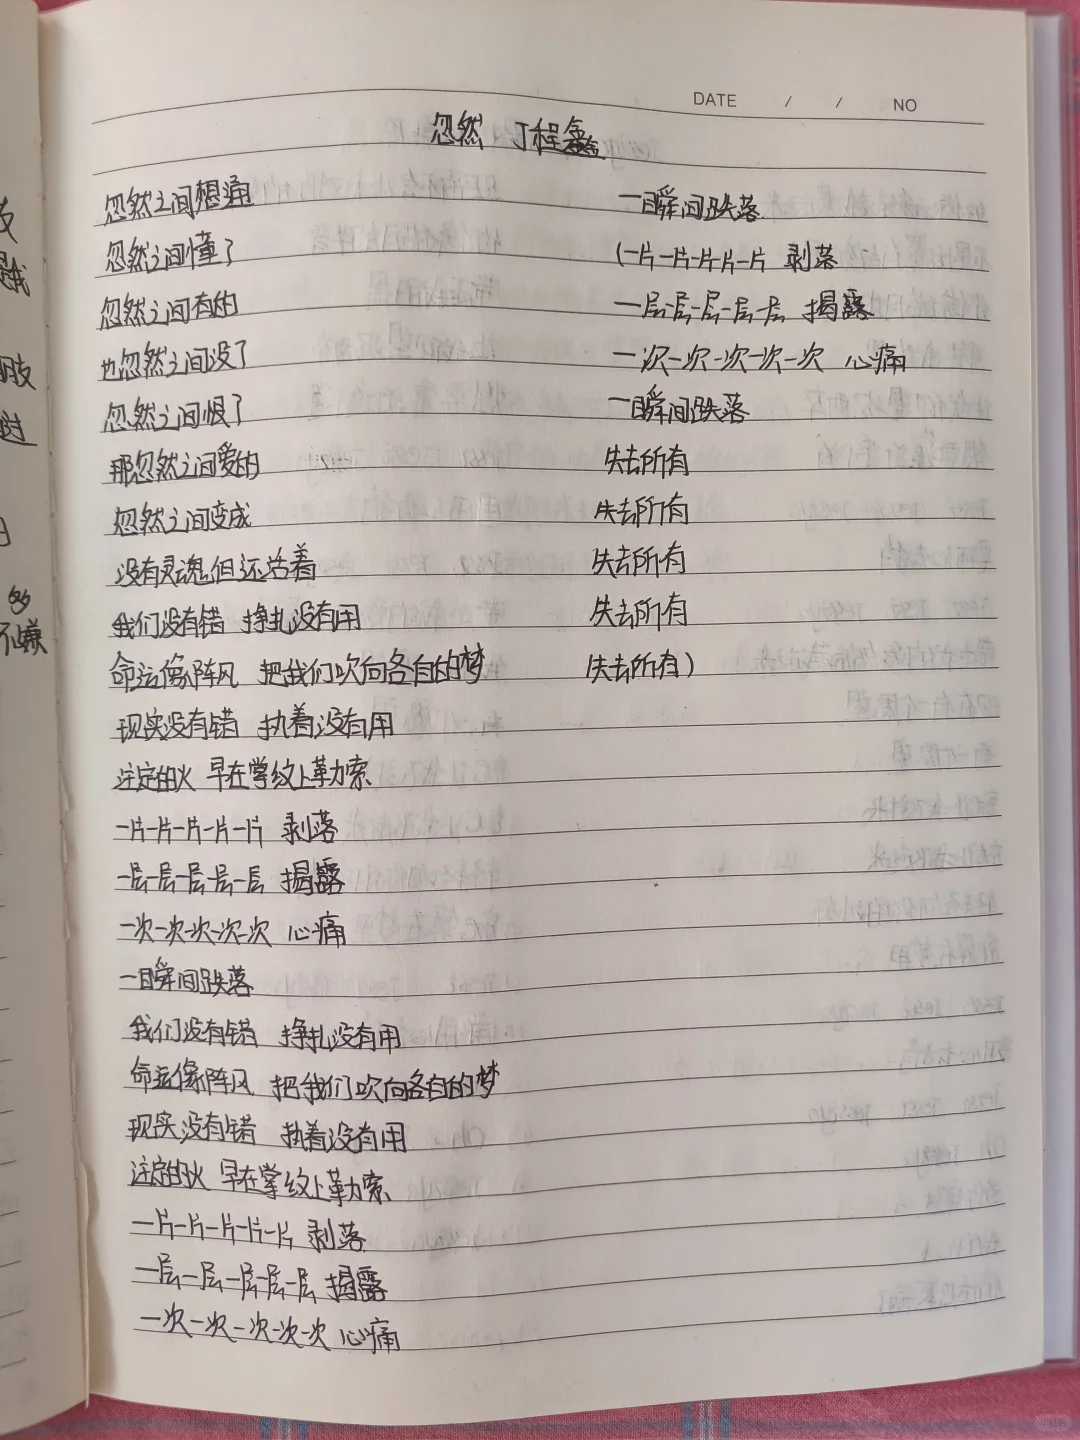 DATE / / NO
忽然 丁程鑫
忽然之间想通
忽然之间懂了
忽然之间有的
也忽然之间没了
忽然之间恨了
那忽然之间爱的
忽然之间变成
没有灵魂但还活着
我们没有错 挣扎没有用
命运像阵风 把我们吹向各自的梦
现实没有错 执着没有用
注定的火 早在掌纹上勒索
一片一片一片一片一片 剥落
一层一层一层一层一层 揭露
一次一次一次一次一次 心痛
一瞬间跌落
我们没有错 挣扎没有用
命运像阵风 把我们吹向各自的梦
现实没有错 执着没有用
注定的火 早在掌纹上勒索
一片一片一片一片一片 剥落
一层一层一层一层一层 揭露
一次一次一次一次一次 心痛
一瞬间跌落
(一片一片一片一片一片 剥落
一层一层一层一层一层 揭露
一次一次一次一次一次 心痛
一瞬间跌落
失去所有
失去所有
失去所有
失去所有
失去所有)
多
不嫌